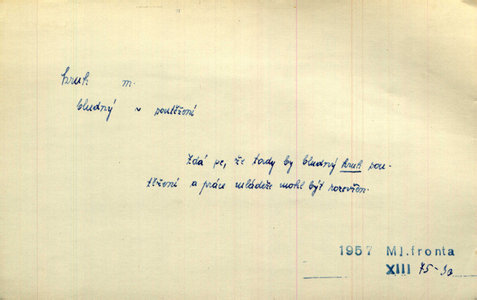 kruh m.
bludný ~ soutěžení
Zdá se, že tady by bludný kruh sou-
těžení a práce mládeže mohl být rozevřen.
1957 Ml.fronta
XIII 75-3a